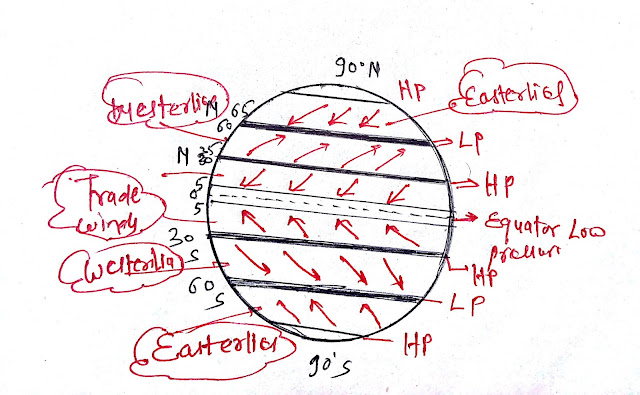 90°N
HP
Easterlies
Westerlies
N
65
60
LP
N 35
30
HP
5
0
5
Trade
winds
Equator Low
pressure
30
S
HP
Westerlies
60
S
LP
Easterlies
HP
90°S